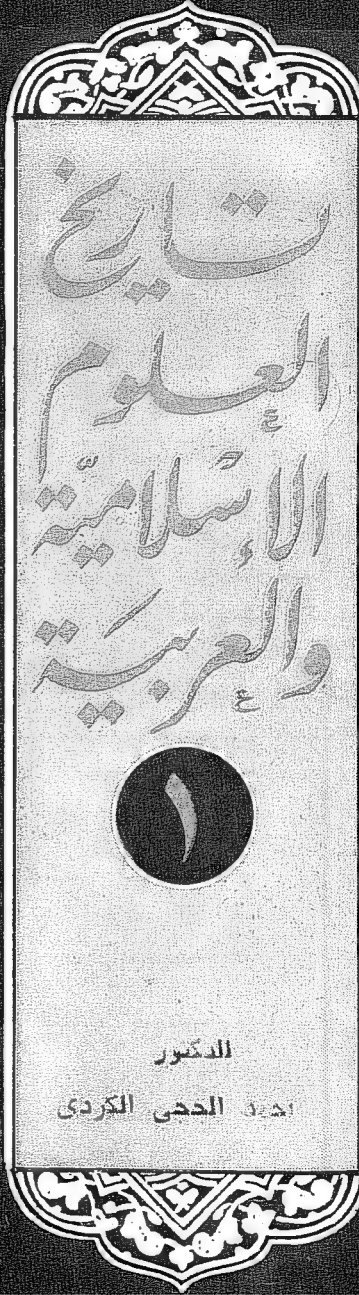 تاريخ
العلوم
الإسلاميّة
والعربيَة
١
الدكتور
الحجي الكردي